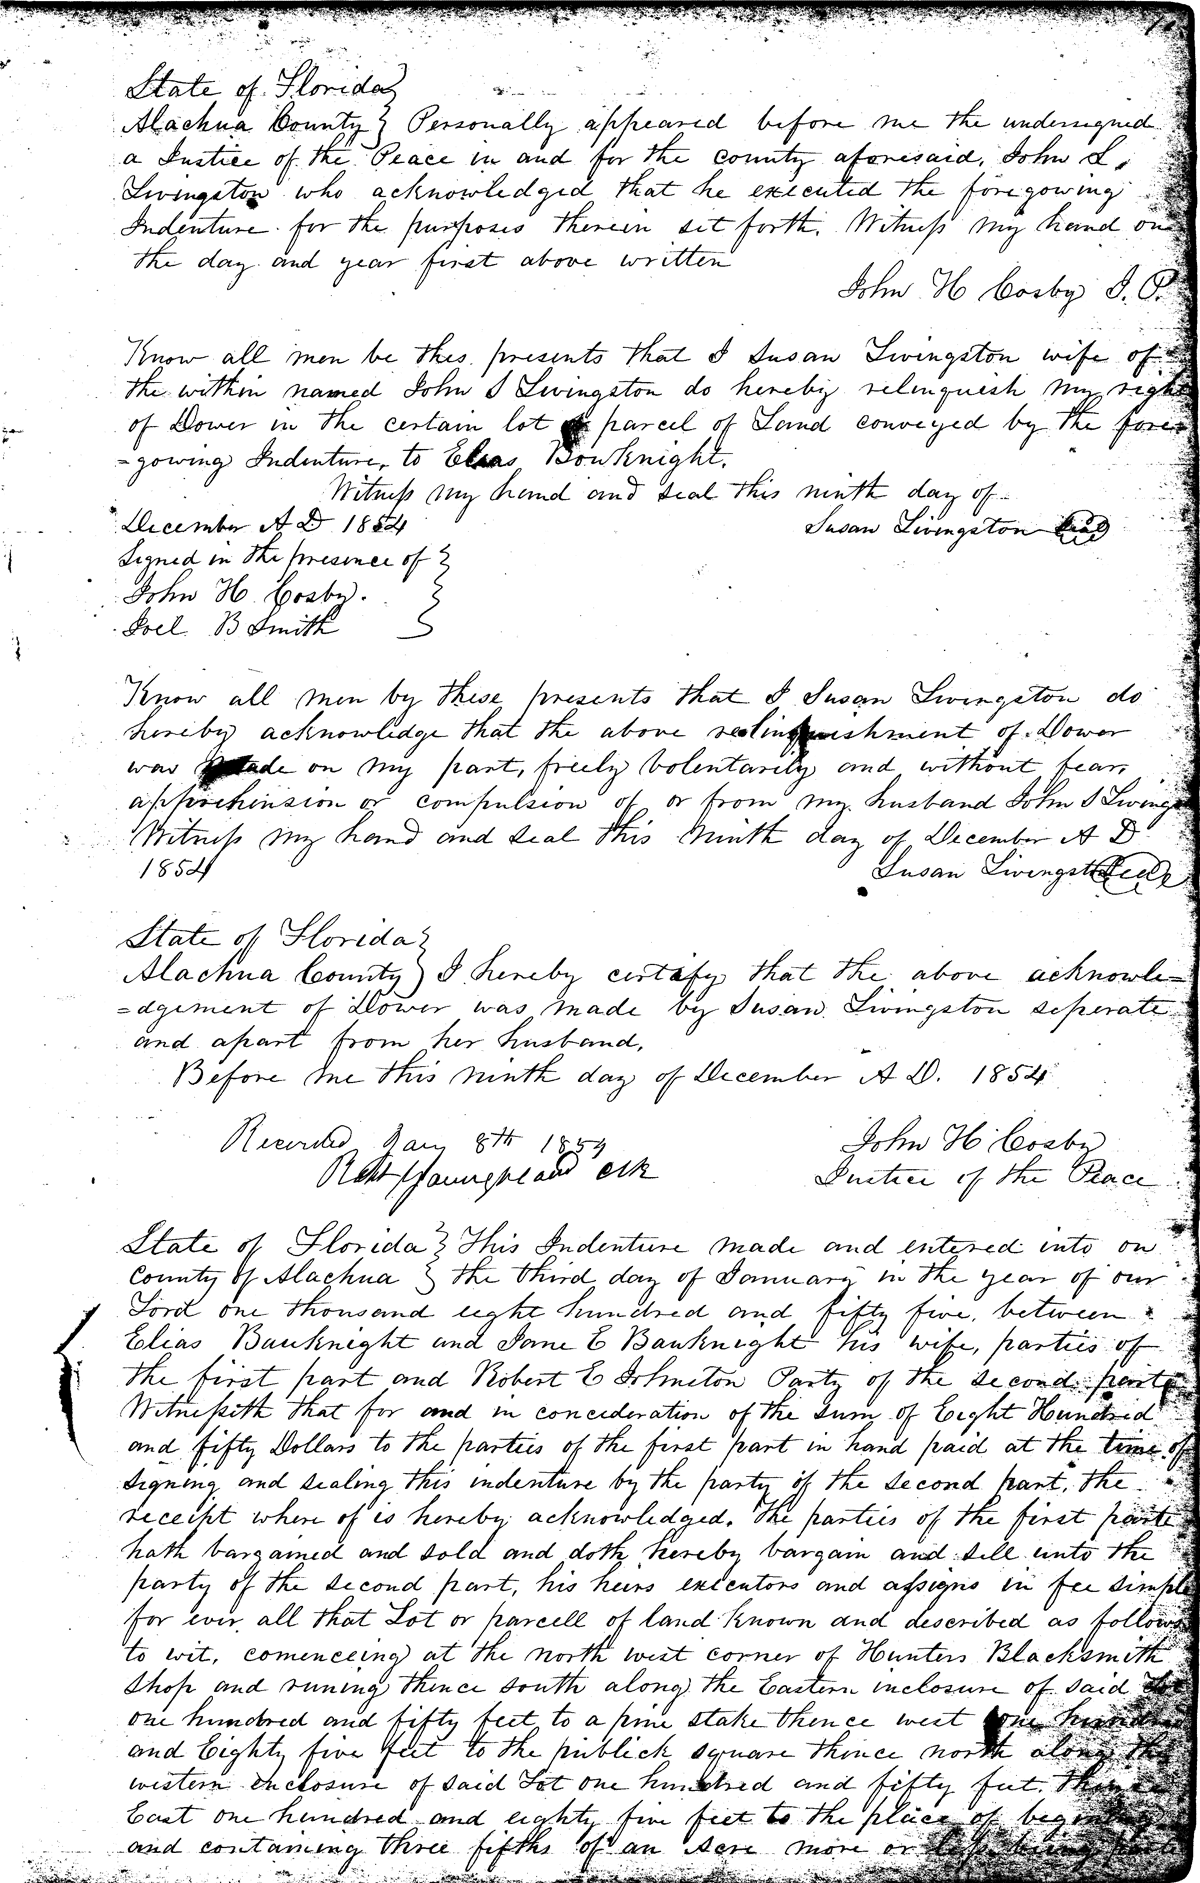 State of Florida }
Alachua County } Personally appeared before me the undersigned
a Justice of the Peace in and for the county aforesaid, John S.
Livingston who acknowledged that he executed the foregowing
Indenture for the purposes therein set forth. Witness my hand on
the day and year first above written
John H Cosby J. P.
Know all men be this presents that I Susan Livingston wife of
the within named John S Livingston do hereby relinquish my right
of Dower in the certain lot parcel of Land conveyed by the fore=
=gowing Indenture, to Elias Bowknight.
Witness my hand and seal this ninth day of
December A D 1854 Susan Livingston Seal
Signed in the presence of }
John H. Cosby. }
Joel B Smith }
Know all men by these presents that I Susan Livingston do
hereby acknowledge that the above relinquishment of Dower
was made on my part, freely volentarily and without fear,
apprehinsion or compulsion of or from my husband John S Livings
Witness my hand and seal this Ninth day of December A D
1854 Susan Livingston Seal
State of Florida }
Alachua County } I hereby certify that the above acknowle=
=dgement of Dower was made by Susan Livingston seperate
and apart from her husband.
Before me this ninth day of December A D. 1854
Recorded Jany 8th 1859 John H Cosby
Robt Youngblood Clk Justice of the Peace
State of Florida } This Indenture made and entered into on
County of Alachua } the third day of January in the year of our
Lord one thousand eight hundred and fifty five, between
Elias Bauknight and Jane E Bauknight his wife, parties of
the first part and Robert E Johnston Party of the second part
Witnessith that for and in concideration of the sum of Eight Hundrid
and fifty Dollars to the parties of the first part in hand paid at the time of
signing and sealing this indenture by the party of the second part, the
receipt where of is hereby acknowledged. The parties of the first parte
hath bargained and sold and doth hereby bargain and sell unto the
party of the second part, his heirs executors and assigns in fee simple
for ever all that Lot or parcell of land known and described as follows
to wit, comenceing at the north west corner of Hunters Blacksmith
shop and runing thence south along the Eastern inclosure of said Lot
one hundred and fifty feet to a pine stake thence west one hundred
and Eighty five feet to the publick square thence north along the
western enclosure of said Lot one hundred and fifty feet. thence
East one hundred and eighty five feet to the place of beginning
and containing three fifths of an acre more or less being